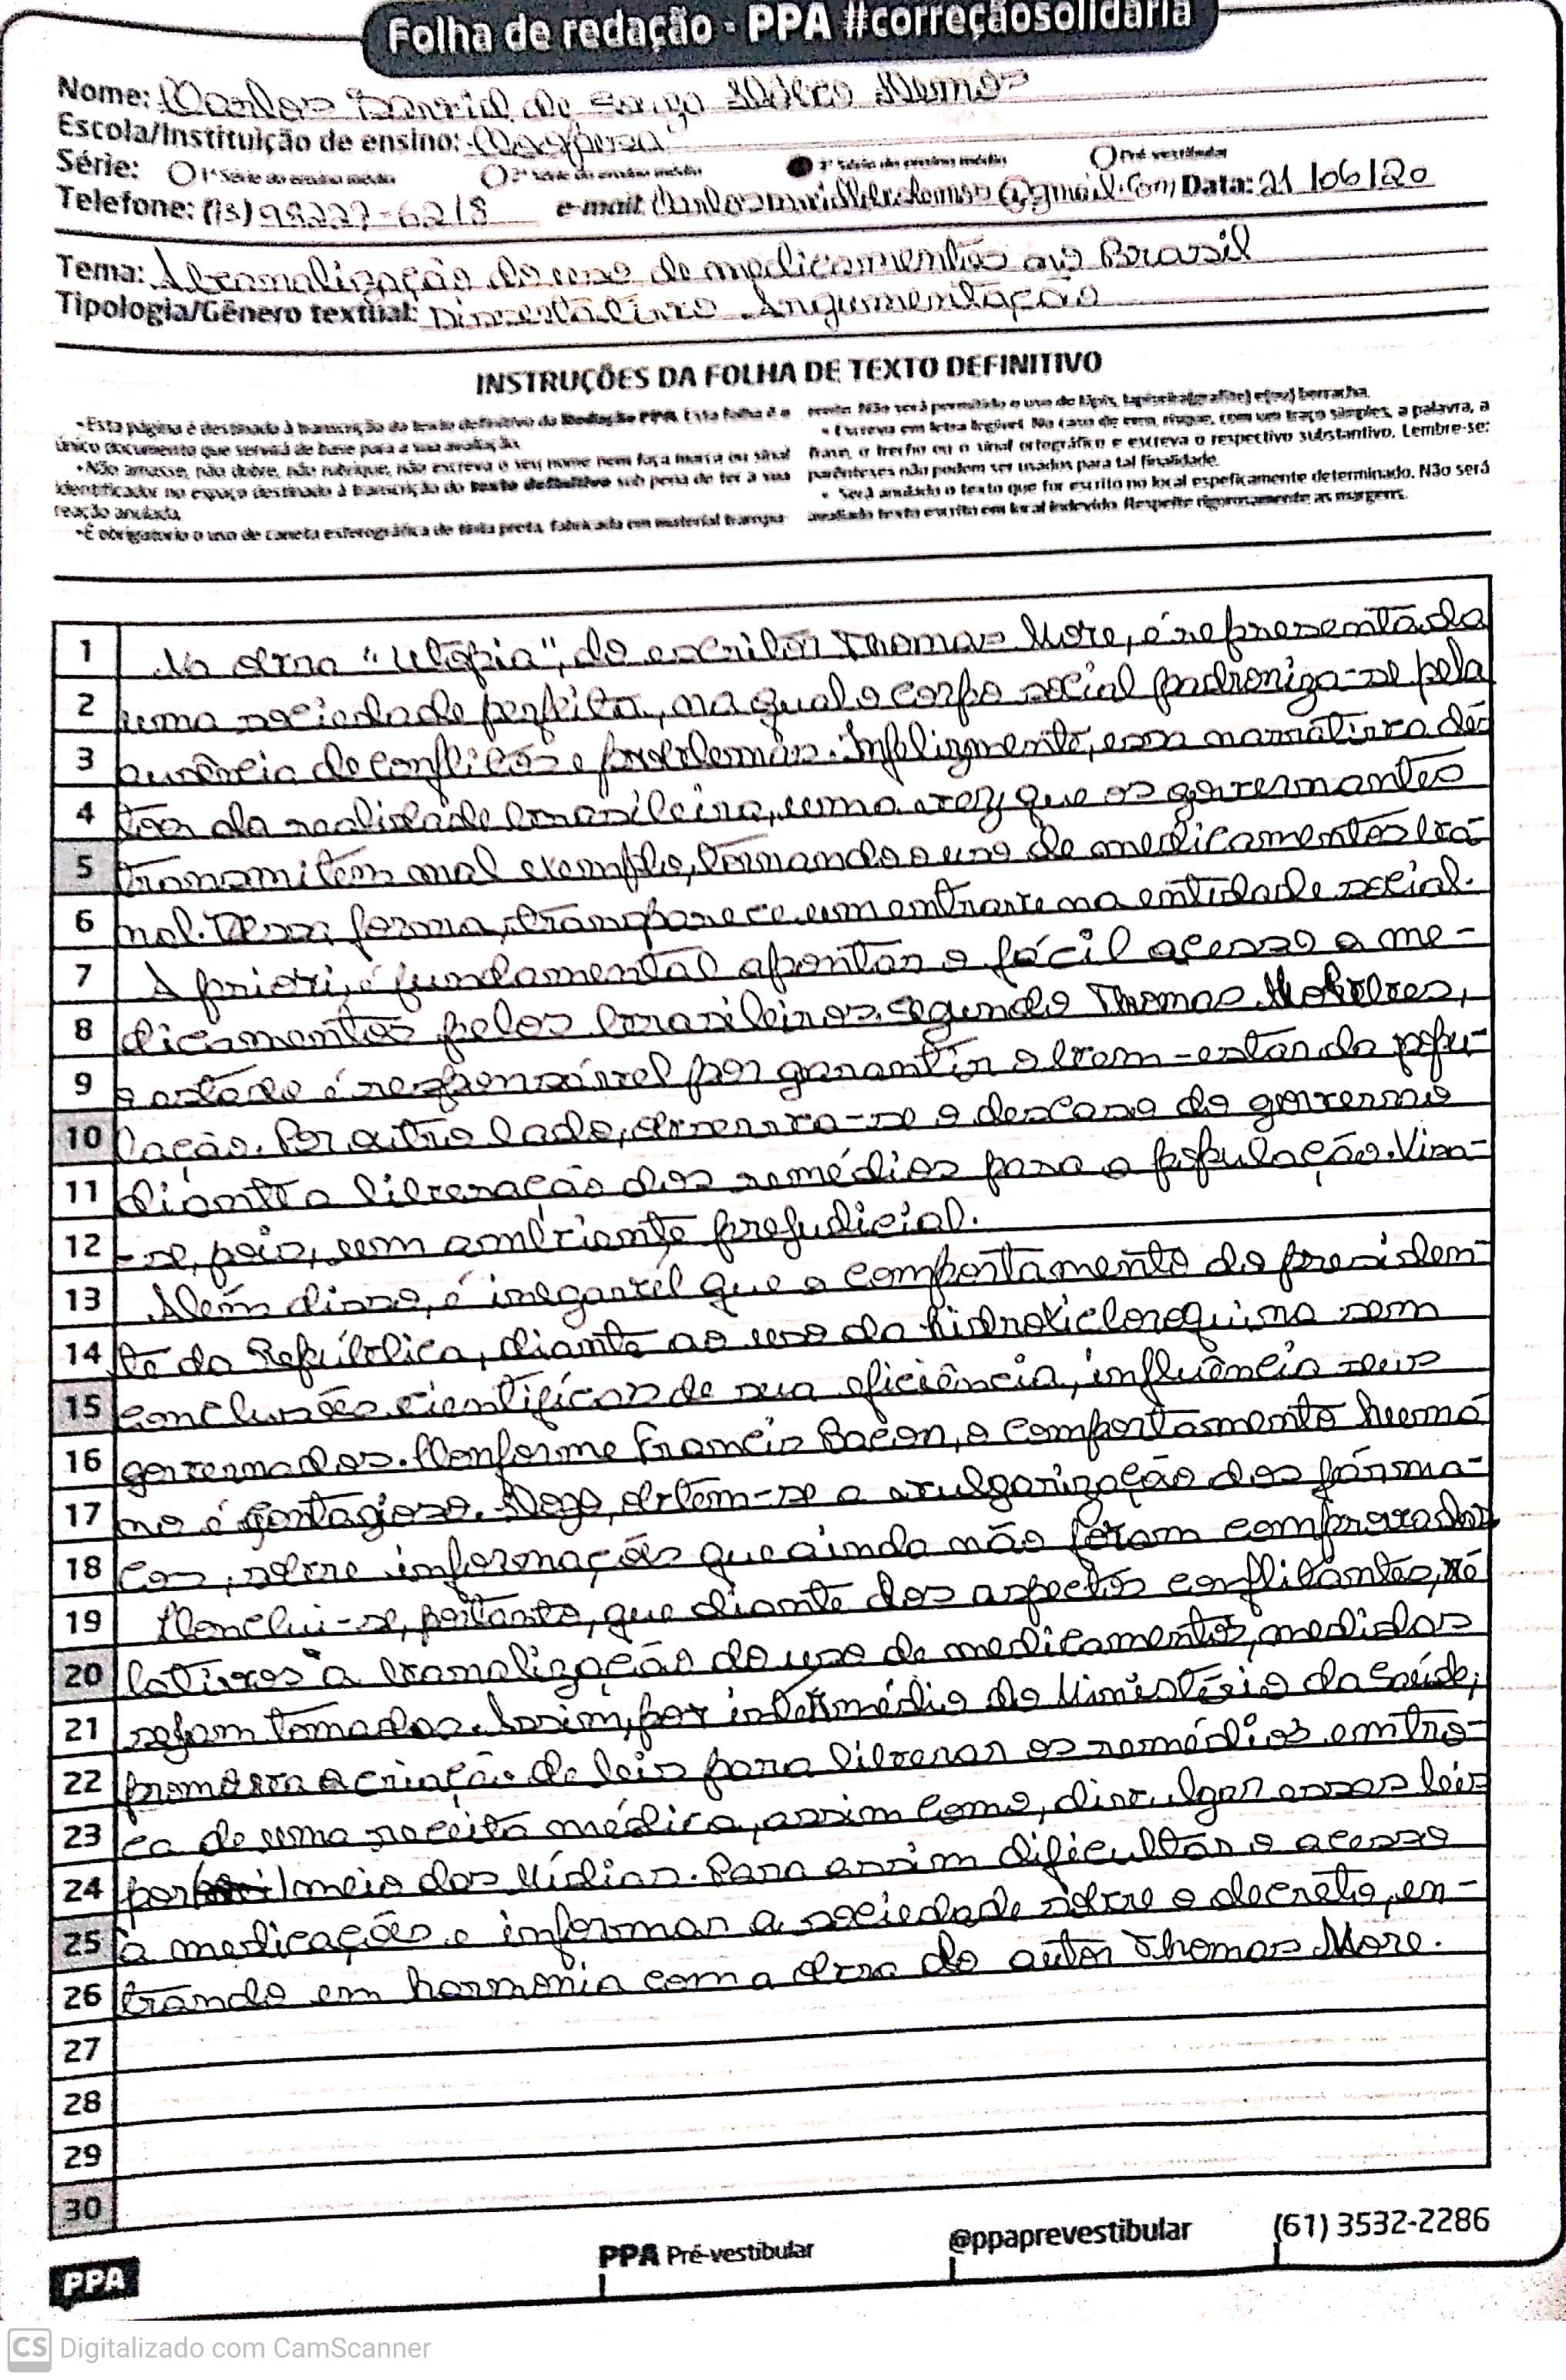 Folha de redação - PPA #correçãosolidária
Nome: Carlos Daniel de Souza Lemos
Escola/Instituição de ensino:
Série: 1ª Série do ensino médio 2ª Série do ensino médio 3ª Série do ensino médio Pré-vestibular
Telefone: e-mail: @gmail.com Data: 21/06/20
Tema: Abanalização do uso de medicamentos no Brasil
Tipologia/Gênero textual: Dissertativo Argumentação
INSTRUÇÕES DA FOLHA DE TEXTO DEFINITIVO
•Esta página é destinada à transcrição do texto definitivo da Redação PPA. Esta folha é o
único documento que servirá de base para a sua avaliação.
•Não amasse, não dobre, não rubrique, não escreva o seu nome nem faça marca ou sinal
identificador no espaço destinado à transcrição do texto definitivo sob pena de ter a sua
reação anulada.
•É obrigatório o uso de caneta esferográfica de tinta preta, fabricada em material transpa-
rente. Não será permitido o uso de lápis, lapiseira(grafite) e(ou) borracha.
• Escreva em letra legível. No caso de erro, risque, com um traço simples, a palavra, a
frase, o trecho ou o sinal ortográfico e escreva o respectivo substantivo. Lembre-se:
parênteses não podem ser usados para tal finalidade.
• Será anulado o texto que for escrito no local espeficamente determinado. Não será
avaliado texto escrito em local indevido. Respeite rigorosamente as margens.
1 Na obra "Utópia", do escritor Thomas More, é representada
2 uma sociedade perfeita, na qual o corpo social padroniza-se pela
3 ausência de conflitos e problemas. Infelizmente, essa narrativa dé
4 toa da realidade brasileira, uma vez que os governantes
5 transmitem mal exemplo, tornando o uso de medicamentos ba-
6 nal. Dessa forma, transparece um entrave na entidade social.
7 A priori, é fundamental apontar o fácil acesso a me-
8 dicamentos pelos brasileiros. Segundo Thomas Hobbes,
9 o estado é responsável por garantir o bem-estar da popu-
10 lação. Por outro lado, observa-se o descaso do governo
11 diante a liberação dos remédios para a população. Visa-
12 -se, pois, um ambiante prejudicial.
13 Além disso, é inegavél que o comportamento do presiden-
14 te da República, diante ao uso da hidroxicloroquina sem
15 conclusões cientifícas de sua eficiência, influência seus
16 governados. Conforme Francis Bacon, o comportamento humâ
17 no é contagioso. Logo, obtem-se a vulgarização dos fárma-
18 cos, sobre informações que ainda não foram comprovadas
19 Conclui-se, portanto, que diante dos aspectos conflitantes, re
20 lativos a banalização do uso de medicamentos, medidas
21 sejam tomadas. Assim, por intermédio do Ministério da Saúde,
22 promova a criação de leis para liberar os remédios em tro-
23 ca de uma receita médica, assim como, divulgar essas leis
24 por meio das Mídias. Para assim dificultar o acesso
25 à medicações e informar a sociedade sobre o decreto, en-
26 trando em harmonia com a obra do autor Thomas More.
27
28
29
30
PPA
PPA Pré-vestibular
@ppaprevestibular
(61) 3532-2286
CS Digitalizado com CamScanner